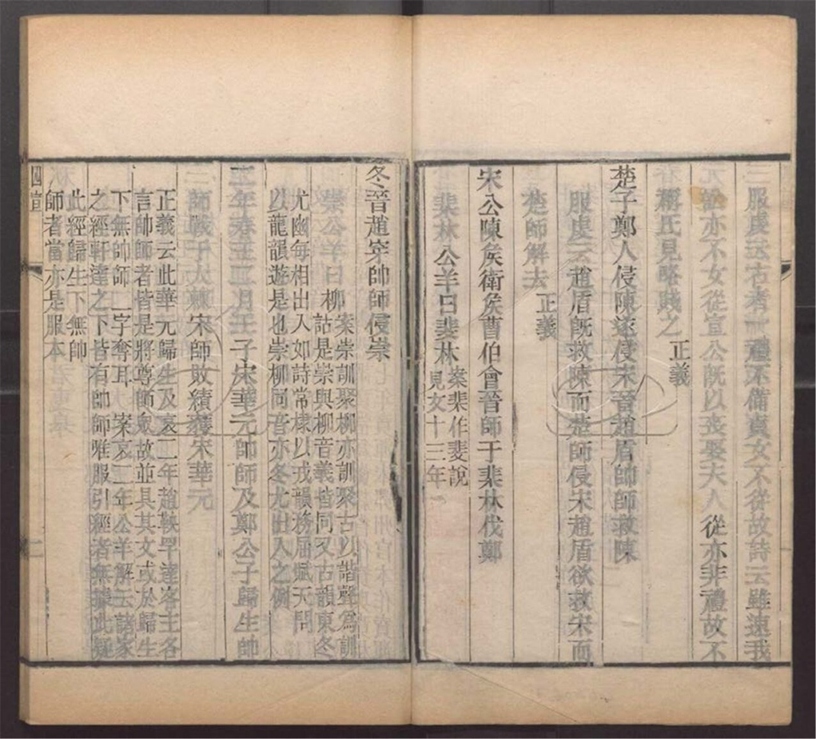 服虔云古者一禮不備貞女不從故詩云雖速我
訟亦不女從宣公既以喪娶夫人從亦非禮故不
稱氏見略賤之正義
楚子鄭人侵陳遂侵宋晉趙盾帥師救陳
服虔云趙盾既救陳而楚師侵宋趙盾欲救宋而
楚師解去正義
宋公陳侯衛侯曹伯會晉師于棐林伐鄭
棐林公羊曰斐林案棐作斐說
見文十三年
冬晉趙穿帥師侵崇
崇公羊曰柳案崇訓聚柳亦訓聚古以諧聲爲訓
詁是崇與柳音義皆同又古韻東冬
尤幽每相出入如詩常棣以戎韻務屈賦天問
以龍韻遊是也崇柳同音亦冬尤出入之例
二年春王二月壬子宋華元帥師及鄭公子歸生帥
師戰于大棘宋師敗績獲宋華元
正義云此華元歸生及哀二年趙鞅罕達客主各
言帥師者皆是將尊師眾故並具其文或於歸生
下無帥師二字奪耳案哀二年公羊解云諸家
之經軒達之下皆有帥師唯服引經者無據此疑
此經歸生下無帥
師者當亦是服本